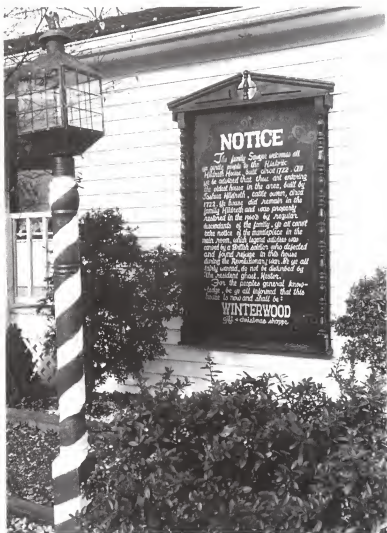 NOTICE
The family Savage welcomes all
ye gentle people to the Historic
Hildreth House, built circa 1722. All
ye be advised that thou art entering
the oldest house in the area, built by
Joshua Hildreth, cattle owner, circa
1722. Ye house did remain in the
family Hildreth and was properly
restored in the by regular
descendants of the family. Ye all canst
take notice of the mandepiece in the
main room, which legend advises was
carved by a British soldier who defected
and found refuge in this house
during the Revolutionary War. Ye are all
fairly warned, do not be disturbed by
the resident ghost, Hester.
For the peoples general know-
ledge, be ye all informed that this
house is now and shall be:
WINTERWOOD
gift & christmas shoppe